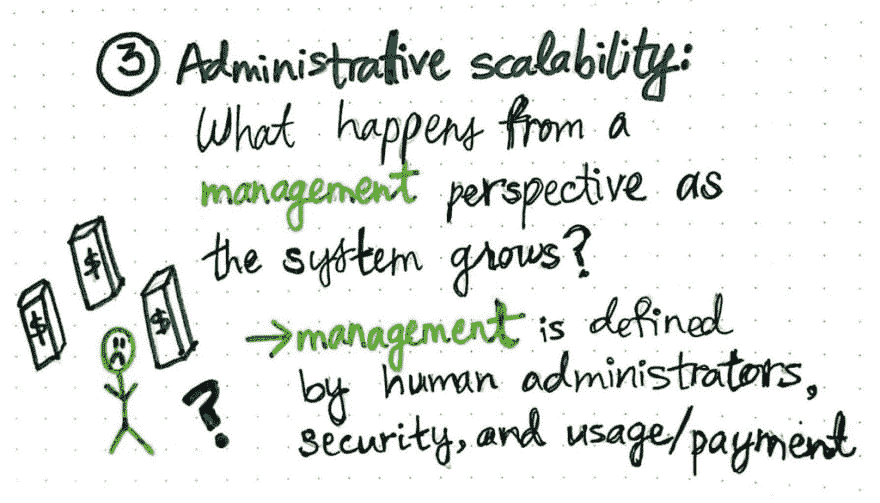 ③ Administrative scalability:
What happens from a
management perspective as
the system grows?
→ management is defined
by human administrators,
security, and usage/payment
$
$
$
?